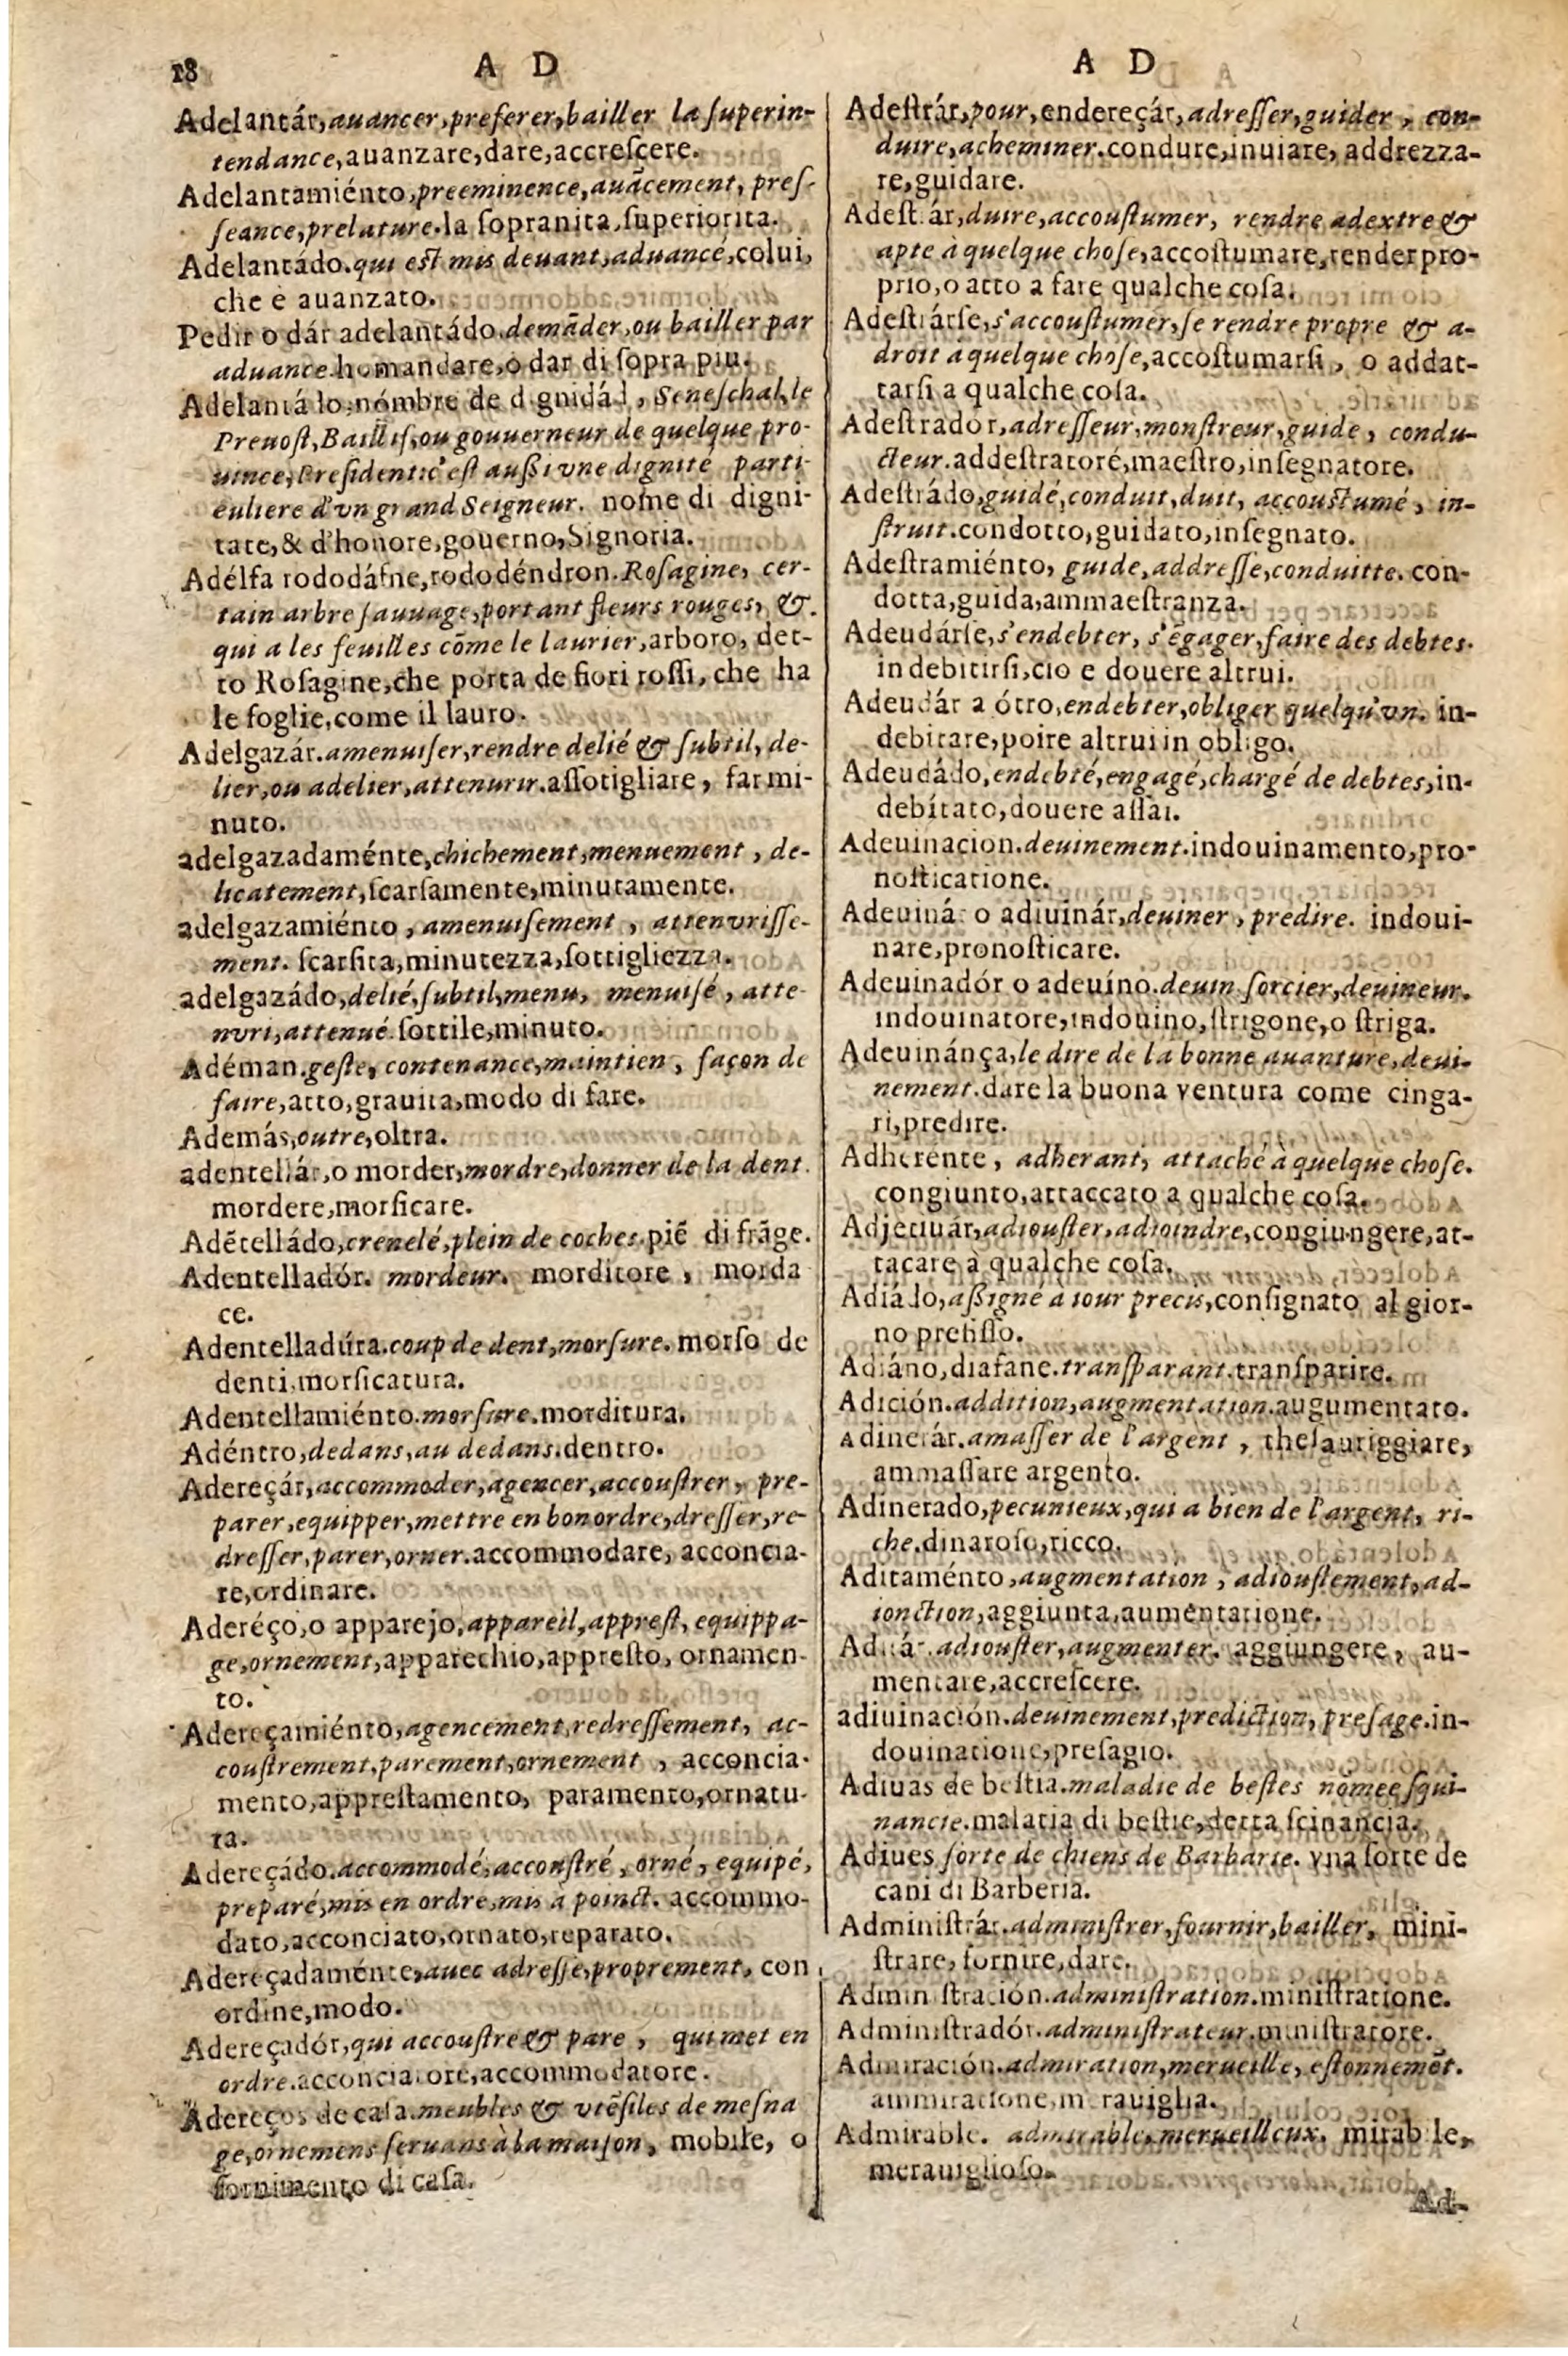 18
A D
Adelantár, auancer, preferer, bailler la ſuperin-
tendance, auanzare, dare, accreſcere.
Adelantamiénto, preeminence, auãcement, preſ-
ſeance, prelature. la ſopranita, ſuperiorita.
Adelantádo. qui est mis deuant, aduancé, colui,
che è auanzato.
Pedir o dár adelantádo. demãder, ou bailler par
aduance. homandare, o dar di ſopra piu.
Adelantá lo, nómbre de dignidád, Seneſchal, le
Preuoſt, Baillif, ou gouuerneur de quelque pro-
uince, Preſident: c'eſt auſsi vne dignité parti-
culiere d'vn grand Seigneur. nome di digni-
tate, & d'honore, gouerno, Signoria.
Adélfa rododáfne, rododéndron. Roſagine, cer-
tain arbre ſauuage, portant fleurs rouges, &
qui a les feuilles cõme le laurier, arboro, det-
to Roſagine, che porta de fiori roſſi, che ha
le foglie, come il lauro.
Adelgazár. amenuiſer, rendre delié & ſubtil, de-
lier, ou adelier, attenurir. aſſotigliare, far mi-
nuto.
adelgazadaménte, chichement, menuement, de-
licatement, ſcarſamente, minutamente.
adelgazamiénto, amenuiſement, attenvriſſe-
ment. ſcarſita, minutezza, ſottigliezza.
adelgazádo, delié, ſubtil, menu, menuiſé, atte-
nvri, attenué. ſottile, minuto.
Adéman. geſte, contenance, maintien, façon de
faire, atto, grauita, modo di fare.
Además, outre, oltra.
adentellár, o morder, mordre, donner de la dent.
mordere, morſicare.
Adẽtelládo, crenelé, plein de coches. piẽ di frãge.
Adentelladór. mordeur. morditore, morda
ce.
Adentelladúra. coup de dent, morſure. morſo de
denti, morſicatura.
Adentellamiénto. morſure. morditura.
Adéntro, dedans, au dedans. dentro.
Adereçár, accommoder, agencer, accouſtrer, pre-
parer, equipper, mettre en bon ordre, dreſſer, re-
dreſſer, parer, orner. accommodare, acconcia-
re, ordinare.
Aderéço, o apparejo, appareil, appreſt, equippa-
ge, ornement, apparechio, appreſto, ornamen-
to.
Adereçamiénto, agencement, redreſſement, ac-
couſtrement, parement, ornement, acconcia-
mento, appreſtamento, paramento, ornatu-
ra.
Adereçádo. accommodé, accouſtré, orné, equipé,
preparé, mis en ordre, mis à poinct. accommo-
dato, acconciato, ornato, reparato.
Adereçadaménte, auec adreſſe, proprement, con
ordine, modo.
Adereçadór, qui accouſtre & pare, qui met en
ordre. acconciatore, accommodatore.
Adereços de caſa. meubles & vtẽſiles de meſna
ge, ornemens ſeruans à la maiſon, mobile, o
fornimento di caſa.
A D
Adeſtrár, pour, endereçár, adreſſer, guider, con-
duire, acheminer. condure, inuiare, addrezza-
re, guidare.
Adeſt ár, duire, accouſtumer, rendre adextre &
apte à quelque choſe, accoſtumare, render pro-
prio, o atto a fare qualche coſa.
Adeſtrárſe, s'accouſtumer, ſe rendre propre & a-
droit à quelque choſe, accoſtumarſi, o addat-
tarſi a qualche coſa.
Adeſtrador, adreſſeur, monſtreur, guide, condu-
cteur. addeſtratoré, maeſtro, inſegnatore.
Adeſtrádo, guidé, conduit, duit, accouſtumé, in-
ſtruit. condotto, guidato, inſegnato.
Adeſtramiénto, guide, addreſſe, conduitte. con-
dotta, guida, ammaeſtranza.
Adeudárſe, s'endebter, s'ẽgager, faire des debtes.
indebitirſi, cio e douere altrui.
Adeudár a ótro, endebter, obliger quelqu'vn. in-
debitare, poire altrui in obligo.
Adeudádo, endebté, engagé, chargé de debtes, in-
debitato, douere aſſai.
Adeuinacion. deuinement. indouinamento, pro-
noſticatione.
Adeuinár o adiuinár, deuiner, predire. indoui-
nare, pronoſticare.
Adeuinadór o adeuíno. deuin ſorcier, deuineur.
indouinatore, indouino, ſtrigone, o ſtriga.
Adeuinánça, le dire de la bonne auanture, deui-
nement. dare la buona ventura come cinga-
ri, predire.
Adherénte, adherant, attaché à quelque choſe.
congiunto, attaccato a qualche coſa.
Adjectiuár, adiouſter, adioindre, congiungere, at-
tacare à qualche coſa.
Adiádo, aſsigné à iour precis, conſignato al gior-
no prefiſſo.
Adiáno, diafane. tranſparant. tranſparire.
Adición. addition, augmentation. augumentato.
Adinerár. amaſſer de l'argent, theſauriggiare,
ammaſſare argento.
Adinerado, pecunieux, qui a bien de l'argent, ri-
che. dinaroſo, ricco.
Aditaménto, augmentation, adiouſtement, ad-
ionction, aggiunta, aumentatione.
Aditár. adiouſter, augmenter. aggiungere, au-
mentare, accreſcere.
adiuinación. deuinement, prediction, preſage. in-
douinatione, preſagio.
Adiuas de beſtia. maladie de beſtes nõmee ſqui-
nancie. malatia di beſtie, detta ſcinancia.
Adiues ſorte de chiens de Barbarie. vna ſorte de
cani di Barberia.
Adminiſtrár. adminiſtrer, fournir, bailler, mini-
ſtrare, fornire, dare.
Admin ſtración. adminiſtration. miniſtratione.
Adminiſtradór. adminiſtrateur. miniſtratore.
Admiración. admiration, merueille, eſtonnemẽt.
ammiratione, m rauiglia.
Admirable. admirable, merueilleux. mirab le,
merauiglioſo.
Ad-